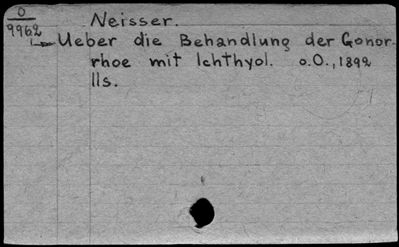 O
9962
Neisser.
Ueber die Behandlung der Gonor-
rhoe mit Ichthyol. o.O., 1892
11s.